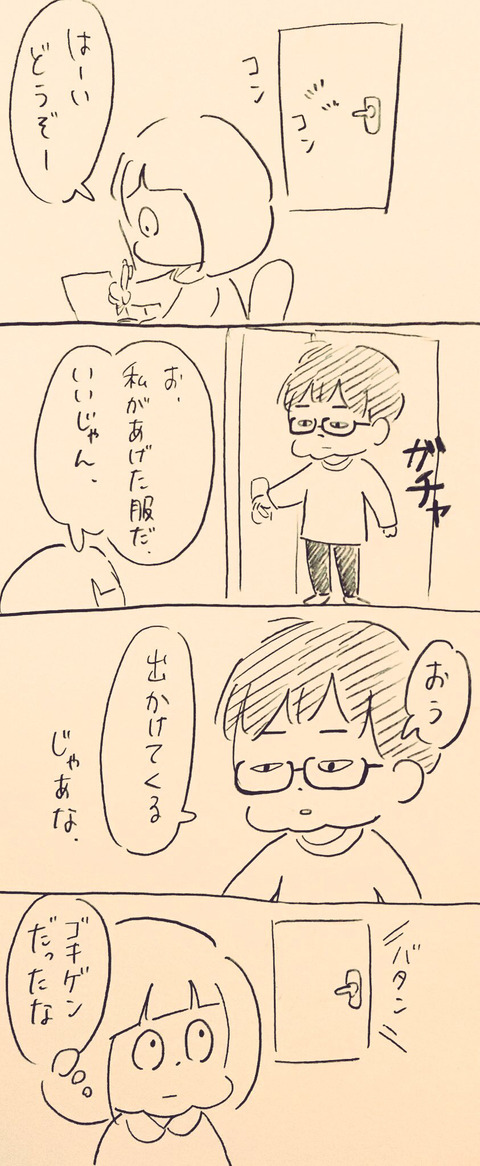 コン
コン
はーい
どうぞー
ガチャ
お、
私があげた服だ.
いいじゃん.
おう
出かけてくる
じゃあな.
バタン
ゴキゲン
だったな